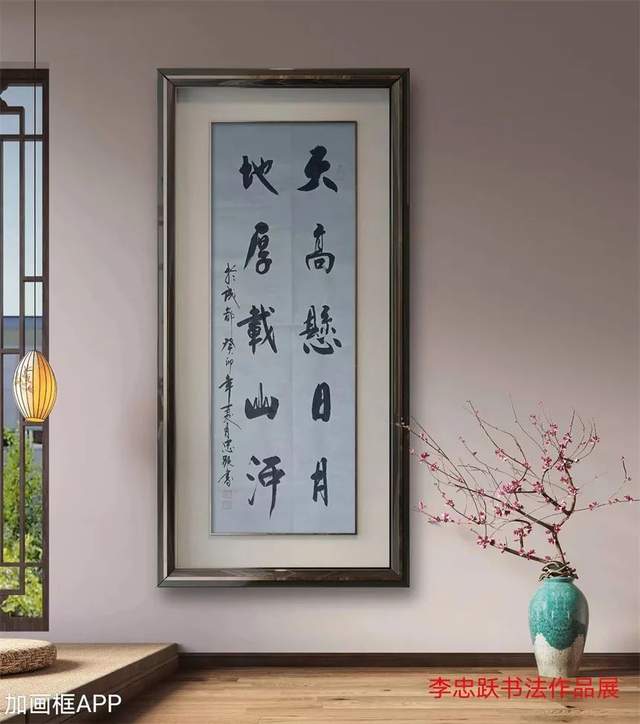 天高懸日月
地厚載山河
於成都癸卯年夏月忠跃書
加画框APP
李忠跃书法作品展